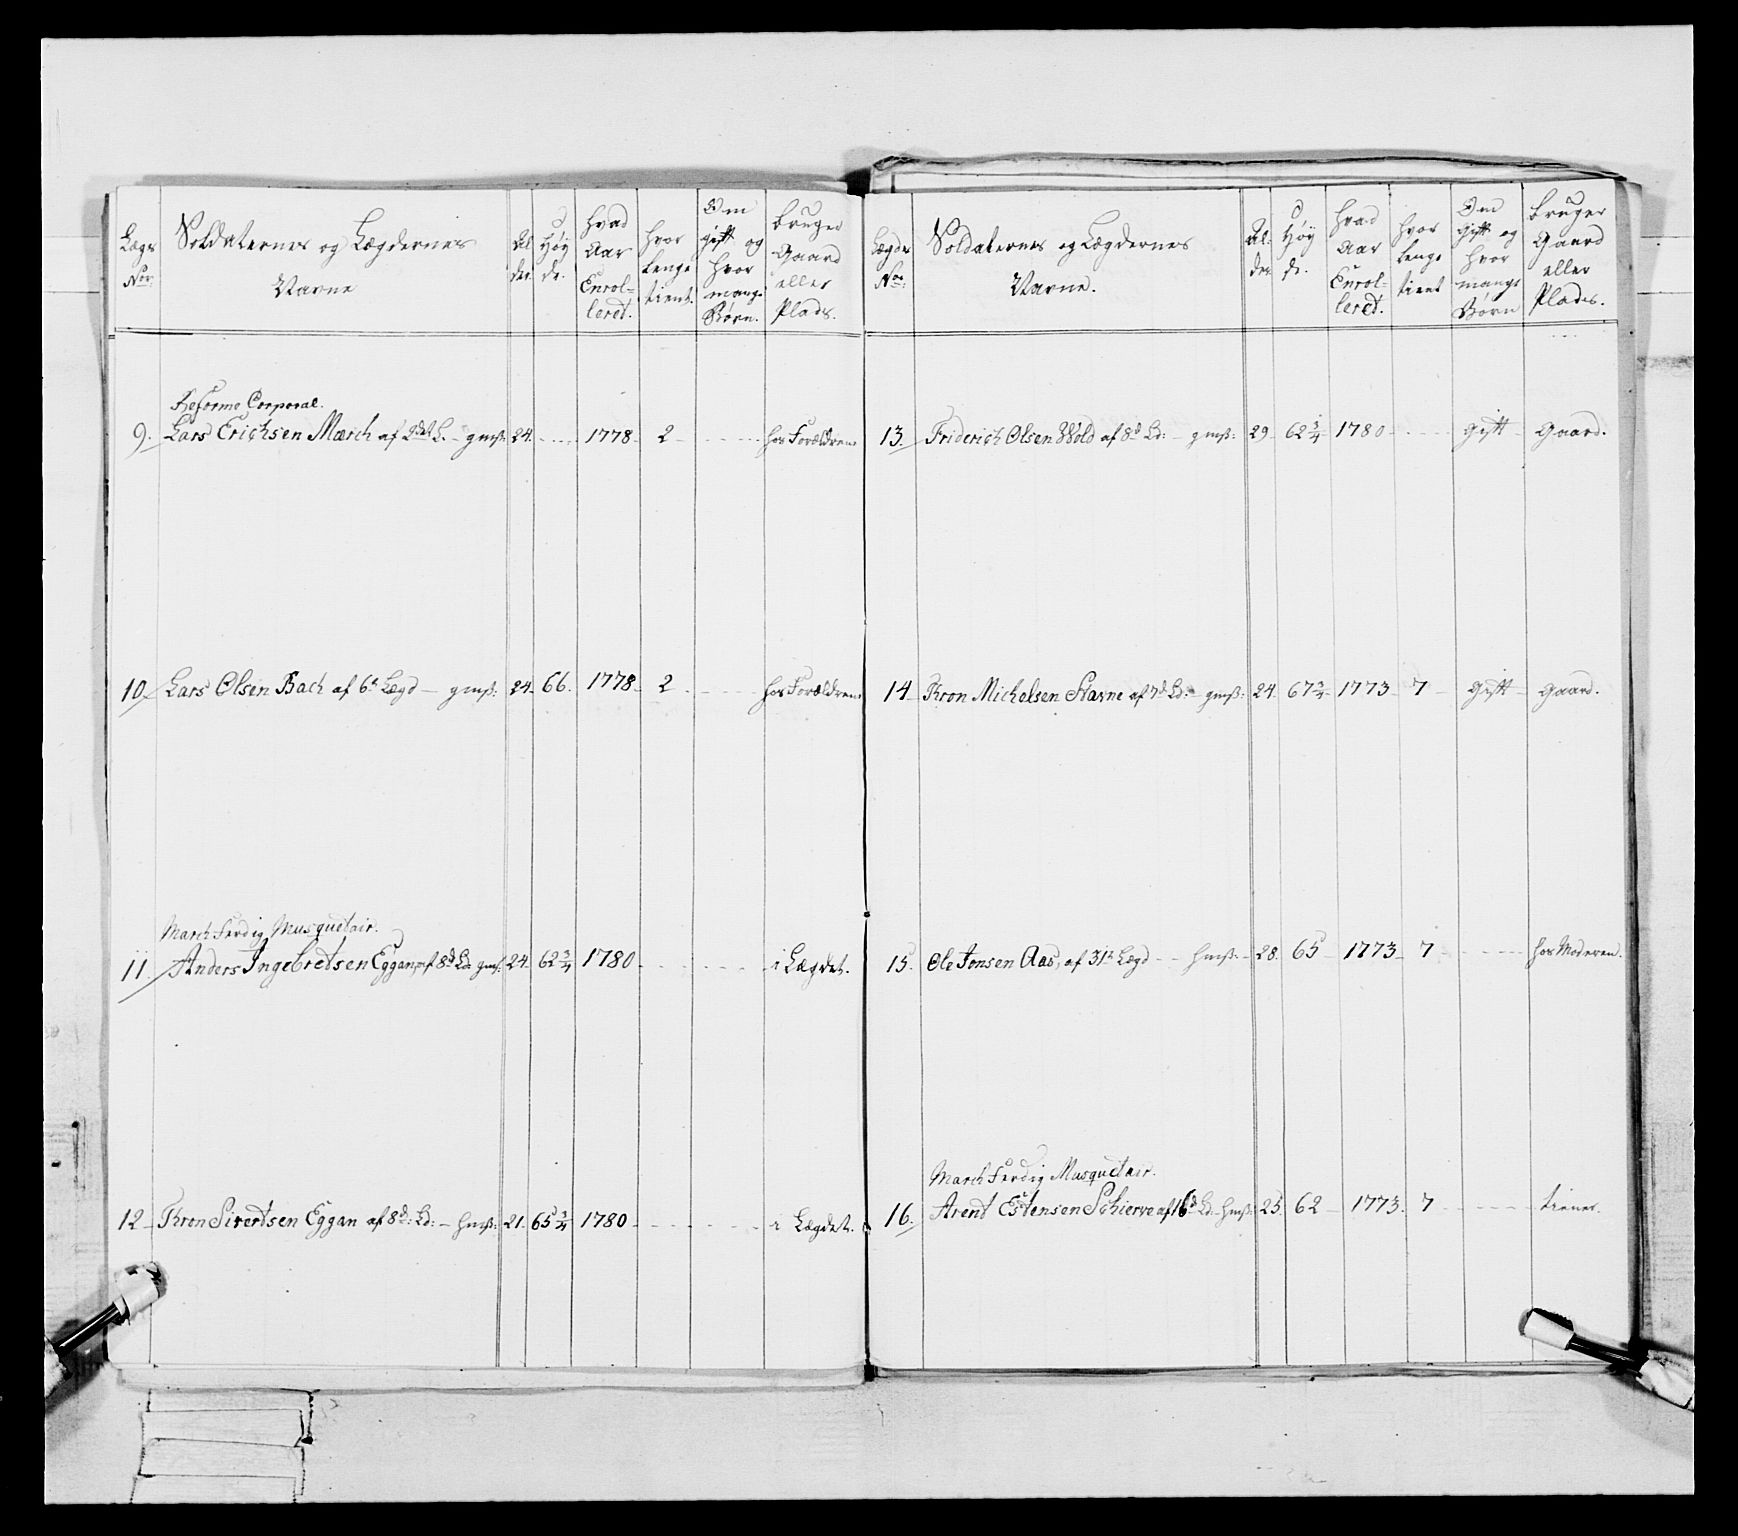 Lægs No:
Soldaternes og Lægdernes Navne
Al der.
Høy de.
hvad Aar Enrol= leret.
hvor lenge tient.
Om gift og hvor mange Børn.
bruger Gaard eller Plads.
Reforme Corporal.
9. Lars Erichsen Mærch af 2det L. - gmß: 24. 1778 - 2 - hos Forældrene
10. Lars Olsen Bach af 6te Lægd - gmß: 24. 66. 1778. 2 hos Forældrene
March Færdig Musquetair.
11. Anders Ingebretsen Eggan, af 8de Ld: gmß: 24. 62 3/4 1780 i Lægdet.
12 - Thron Sivertsen Eggan af 8de: Ld: - hmß: 21. 65 3/4 1780 i Lægdet.
Lægdes No:
Soldaternes og Lægdernes Navne.
Al. der
Høy de.
hvad Aar Enrol= leret.
hvor lenge tient
Om Gift og hvor mange Børn
bruger Gaard eller Plads.
13. Friderich Olsen Wold af 8de Ld: - gmß: 29 62 3/4 1780 Gift Gaard.
14. Thron Michelsen Stavne af 7de Ld: - gmß: 24. 67 3/4 1773 7 Gift Gaard.
15. Ole Jonsen Aas, af 31te Lægd - hmß: 28. 65 1773 7 hos Moderen.
March Færdig Musquetair.
16. Arent Estensen Schierve af 16de Ld: hmß: 25. 62 1773. 7 tiener.